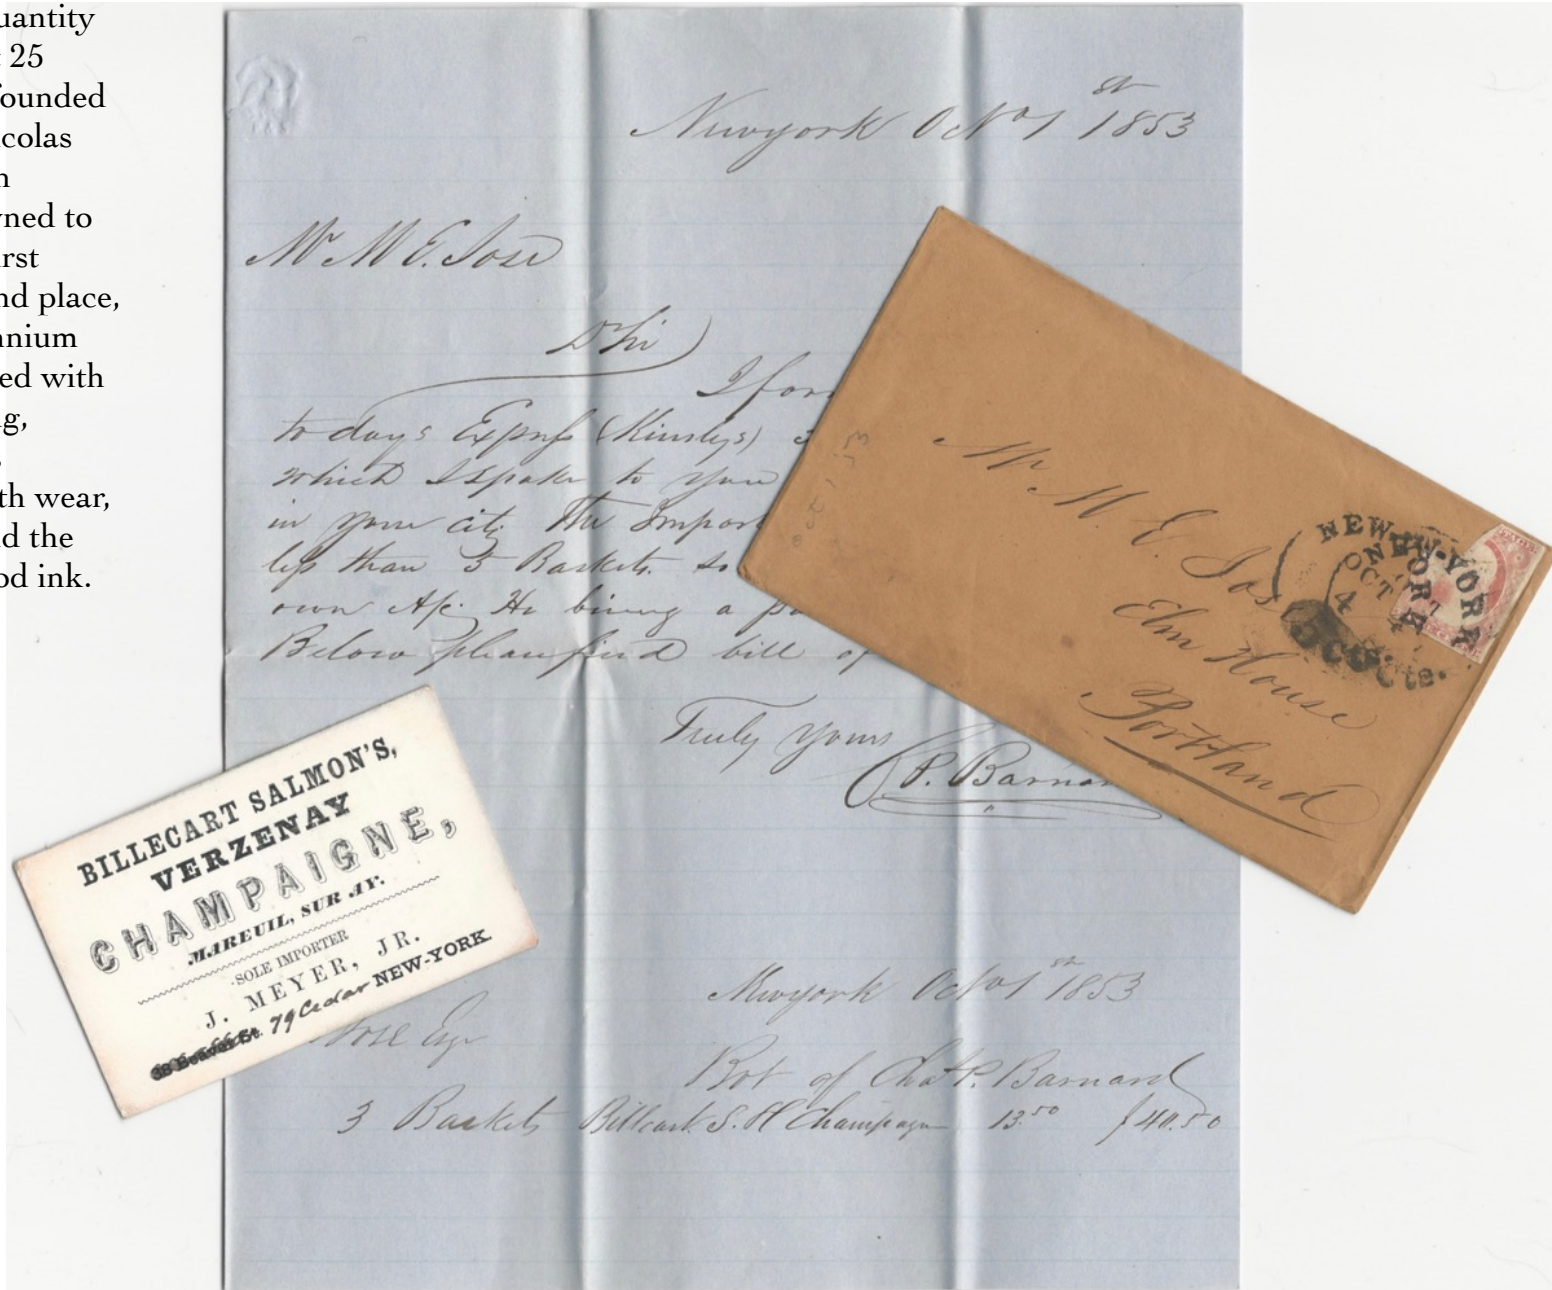 uantity
25
founded
colas
n
ned to
rst
nd place,
nnium
ed with
g,
th wear,
d the
od ink.
Newyork Oct 1st 1853
Mr M E. Jose
D Sir
I for
to days Express (Kinsleys) 3
which I spoke to you
in your city The Import
less than 5 Baskets. so
own A/c. He being a
Below please find bill of
Truly Yours
C P. Barnar
Newyork Oct 1st 1853
Jose Esqr
Bot of Chas P. Barnard
3 Baskets Billcart S. H Champagne 13.50 $40.50
Mr M. E. Jos
Elm House
Portland
NEW-YORK
OCT
4
NEW-YORK
3 cts.
OCT 1 53
BILLECART SALMON'S,
VERZENAY
CHAMPAIGNE,
MAREUIL, SUR AY.
SOLE IMPORTER
J. MEYER, JR.
38 Beaver St. 79 Cedar NEW-YORK.